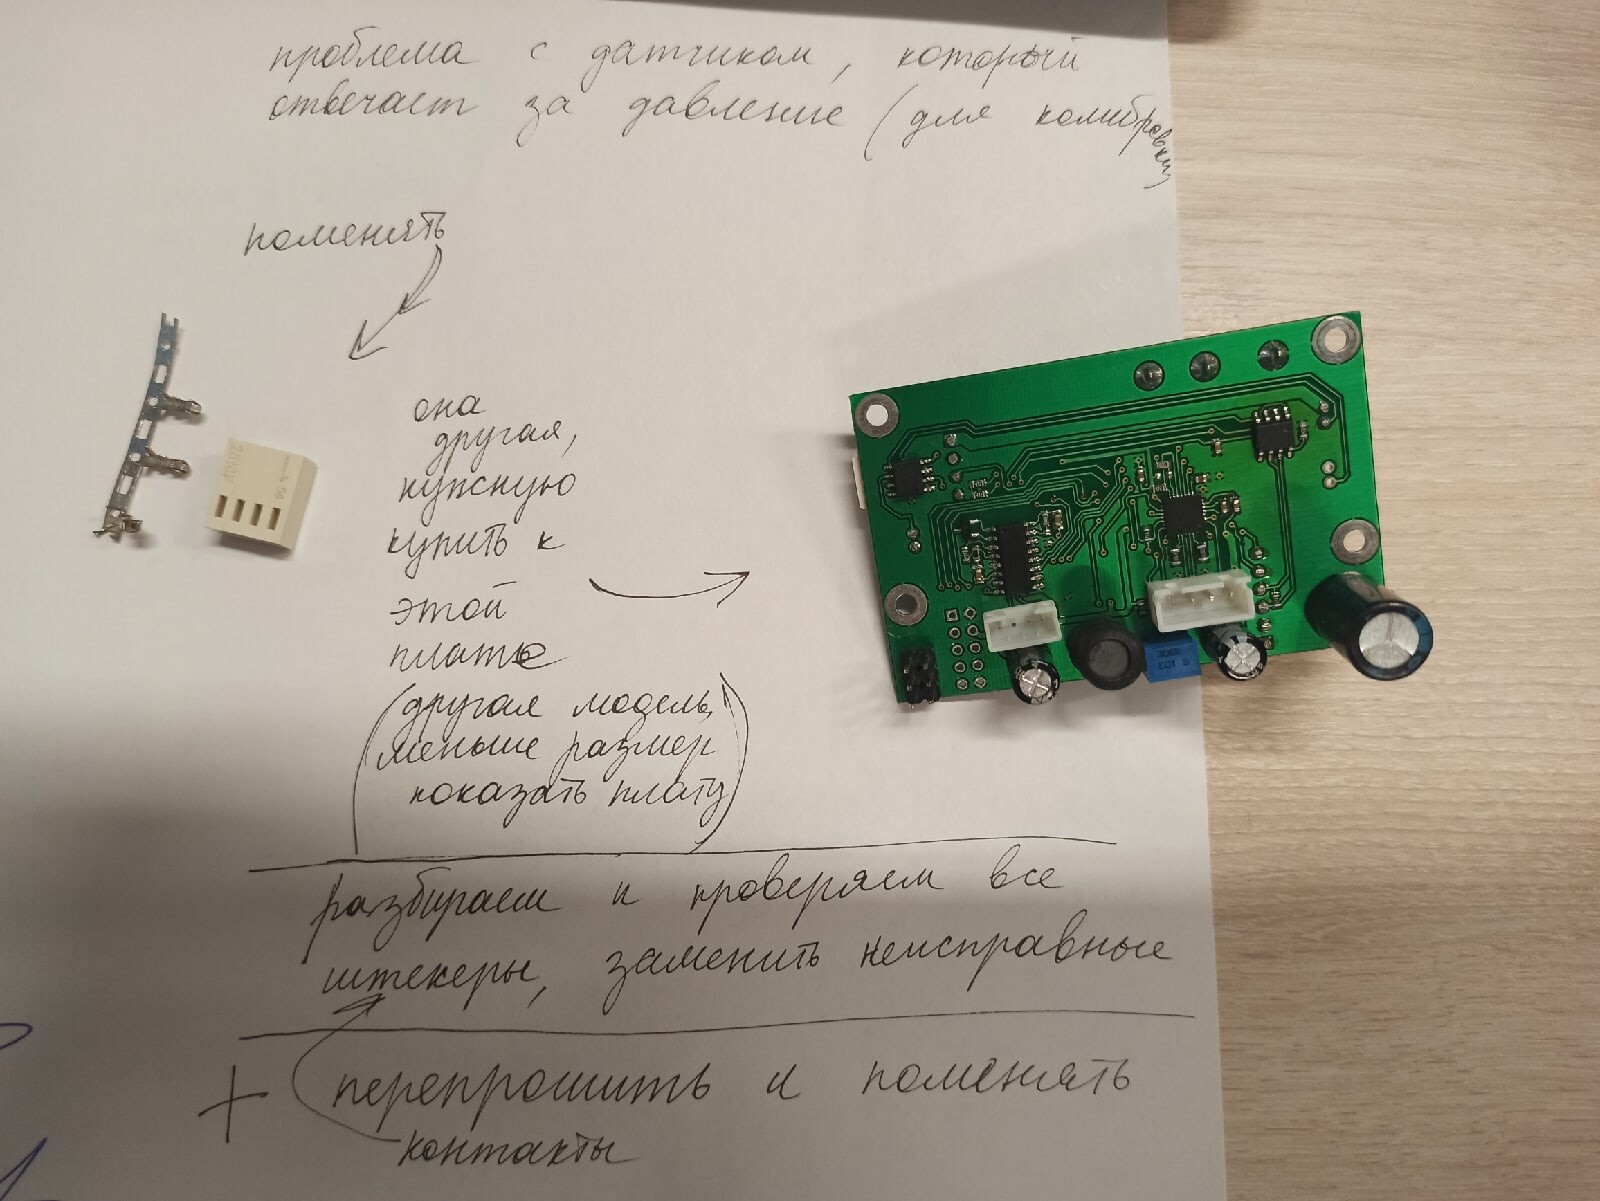 проблема с датчиком, который
отвечает за давление (для калибровки)
поменять
она
другая,
нужную
купить к
этой
плате
(другая модель,
меньше размер
показать плату)
разбираем и проверяем все
штекеры, заменить неисправные
+ перепрошить и поменять
контакты